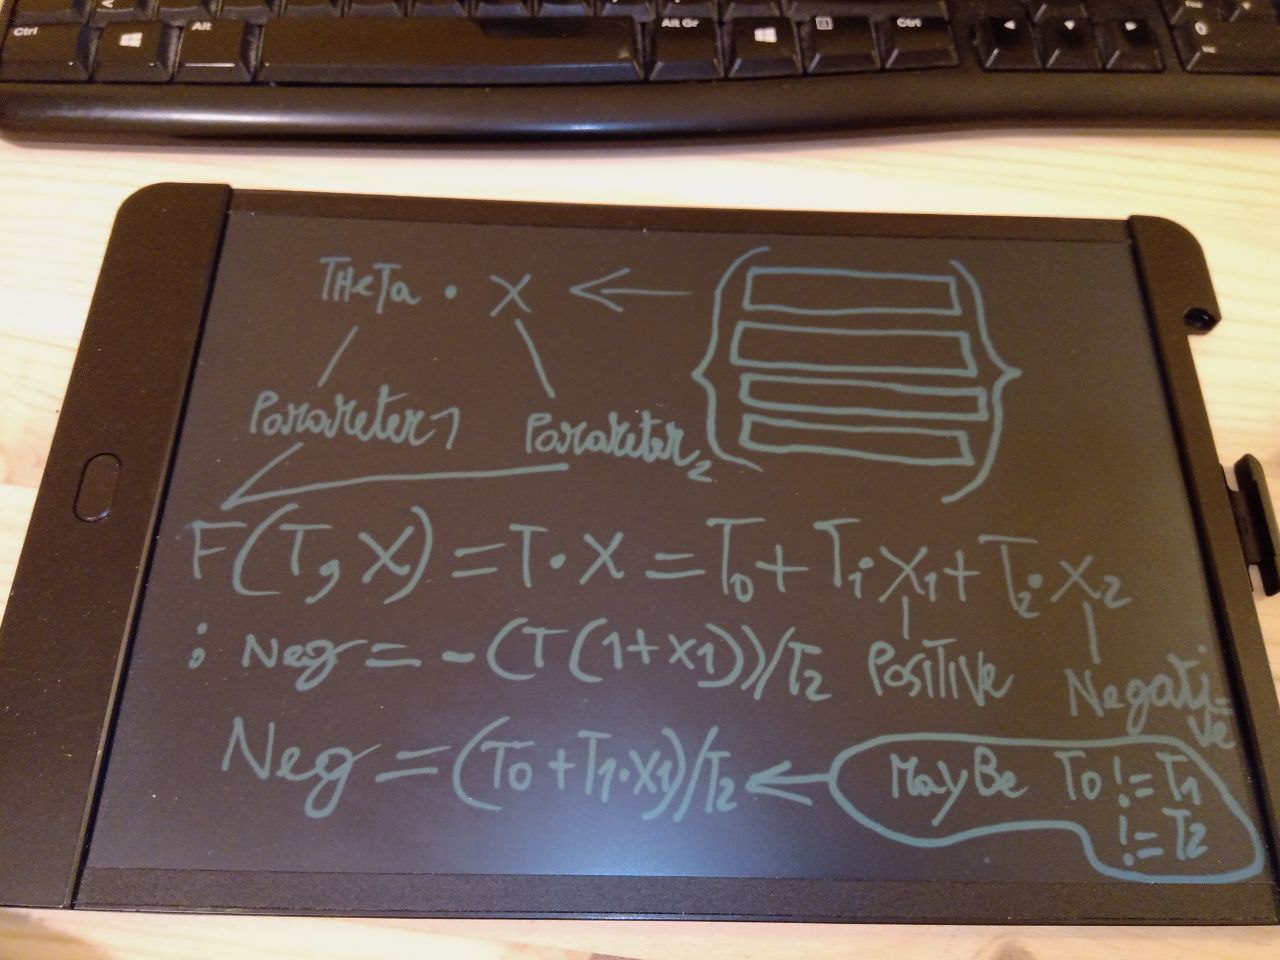 Ctrl Alt Alt Gr Ctrl
THeTa · X ←
Parameter 1 Parameter 2
F(T, X) = T · X = T0 + T1 · X1 + T2 · X2
: Neg = -(T(1+x1))/T2 POSITIVe Negati=ve
Neg = (T0 + T1 · X1)/T2 ← MayBe T0 != T1
!= T2